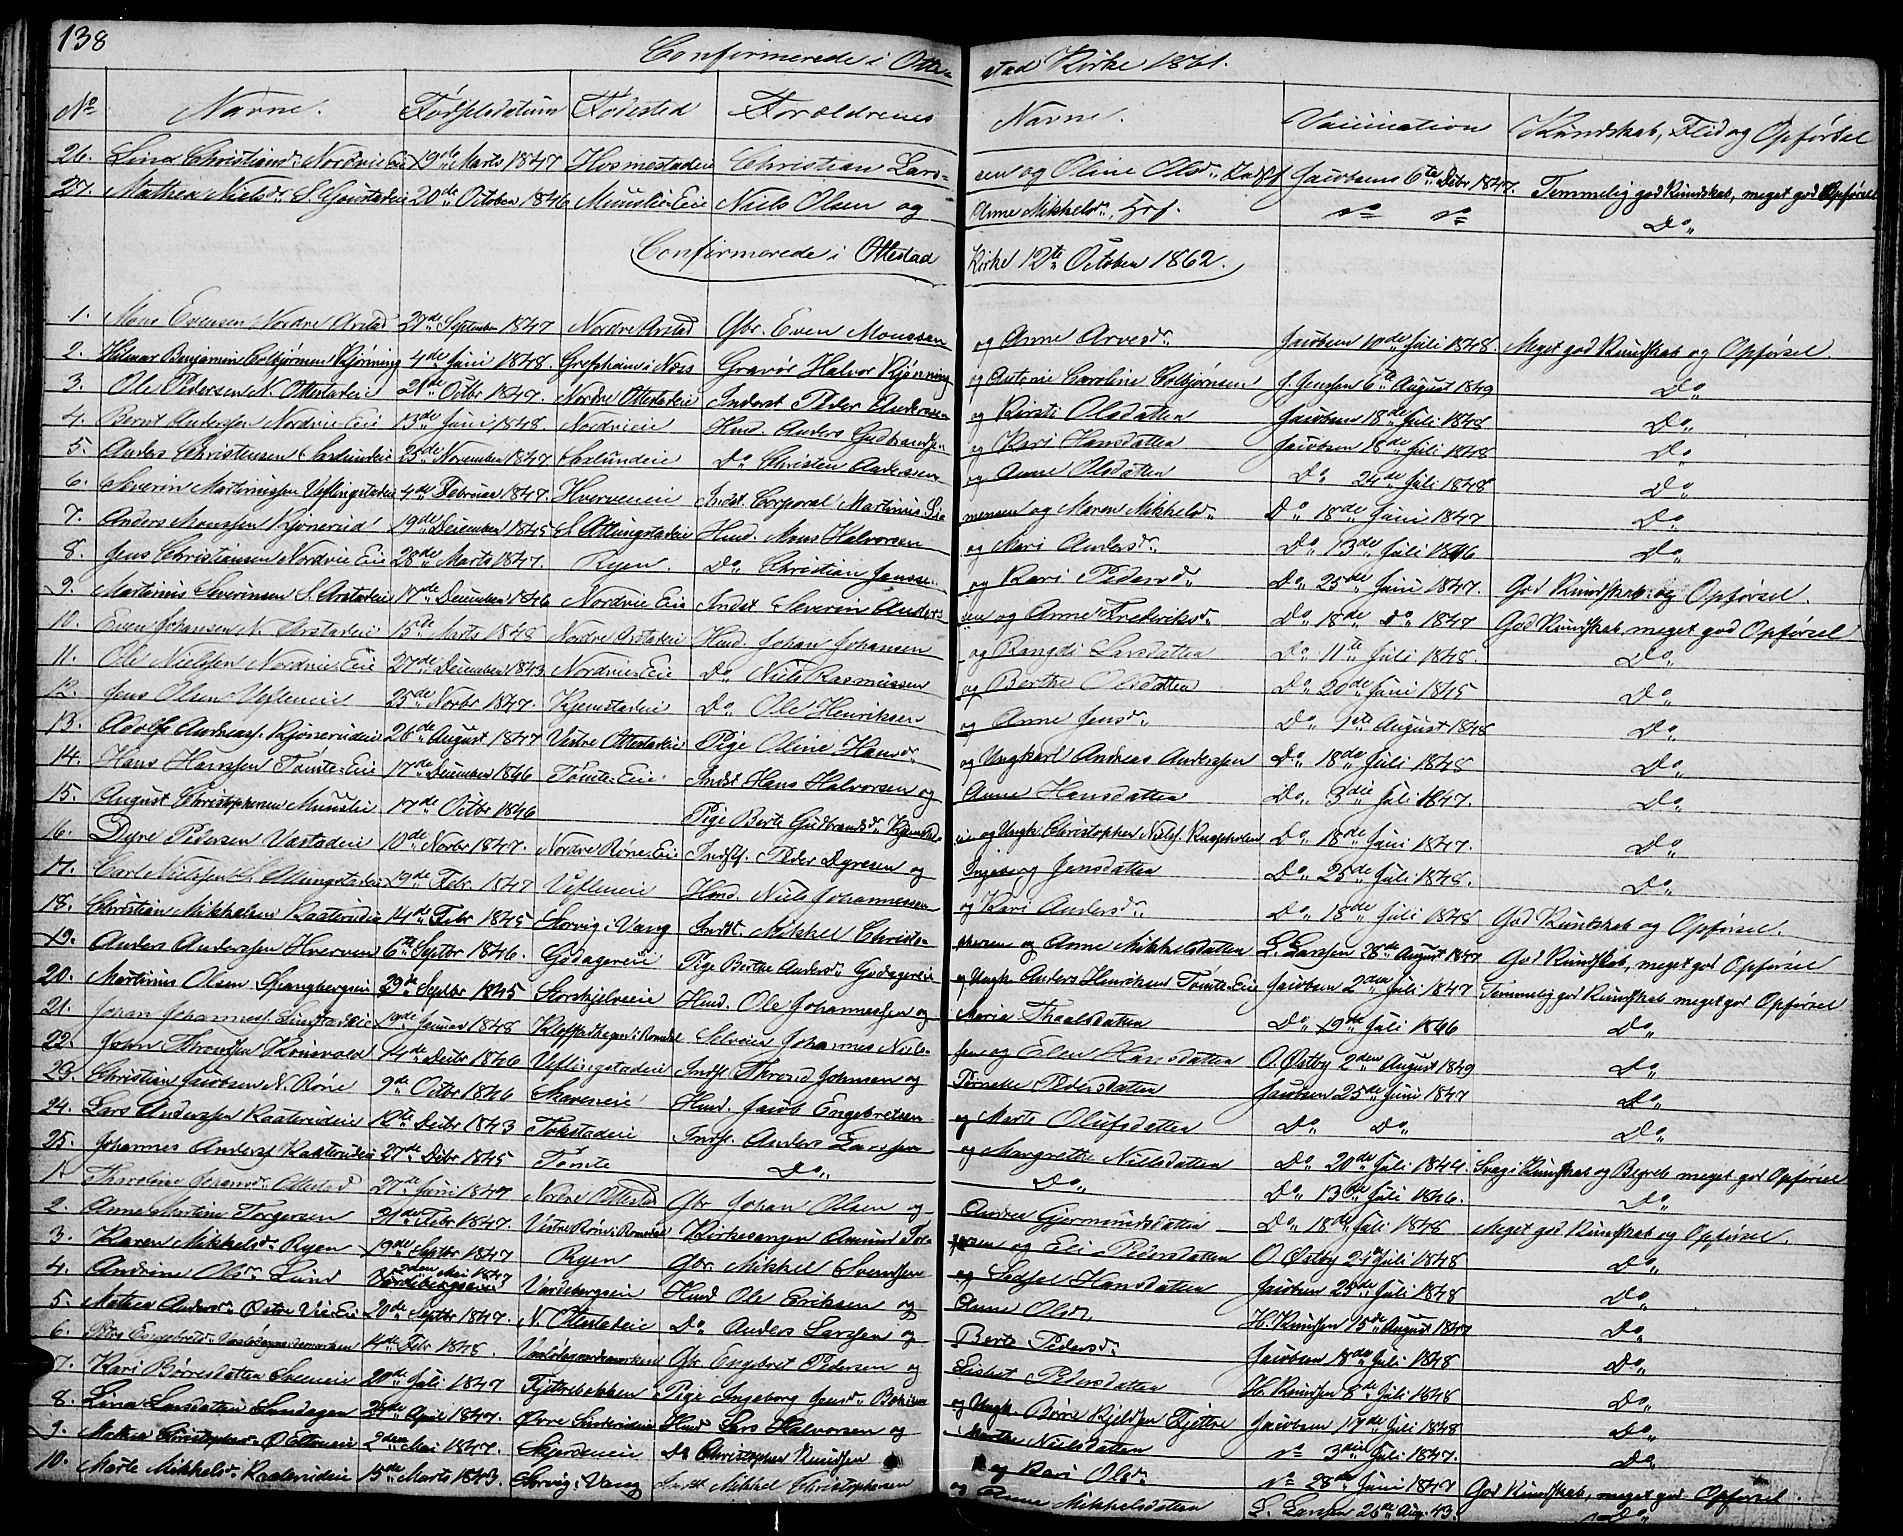 138
Confirmerede i Otte- stad Kirke 1861.
No Navne. Fødselsdatum Fødested Forældrenes Navne. Vaccination Kundskab, Flid og Opførsel
26. Lina Christiansdr. Nordvie Eie 19de Marts 1847 Hosmestadeie Christian Lars- sen og Oline Olsdr. Jacobsen 6te Debr 1847. Temmelig god Kundskab, meget god Opførsel
27. Mathea Nielsdr. S. 20de October 1846 Munslie-Eie Niels Olsen og Anne Mikkelsdr. do do Do
Confirmerede i Ottestad Kirke 12te October 1862.
1. Mons Evensen Nordre Arstad 27de September 1847 Nordre Arstad Gbr. Even Monssen og Anne Arvesdr. Jacobsen 10de Juli 1848. Meget god Kundskab og Opførsel
2. Hilmar Benjamin Colbjørnsen Kjønning 4de Juni 1848. Grefsheim i Næs Gravør Halvor Kjønning og Antonie Caroline Colbjørnsen J. Jensen 6te August 1849 Do
3. Ole Pedersen N. Ottestadeie 21de Octbr 1847. Nordre Ottestadeie Inderst Peder Andersen og Kirsti Olsdatter Jacobsen 18de Juli 1848 Do
4. Bernt Andersen Nordvie Eie 13de Juni 1848 Nordvieeie Husd. Anders Gudbrandsen og Kari Hansdatter Jacobsen 18de Juli 1848 Do
5. Anders Christensen 25de November 1847 Do Christen Andersen og Anne Olsdatter Do 24de Juli 1848 Do
6. Severin Martinussen Veflingstadeie 4de Februar 1847. Hverveneie Indst. Corporal Martinus Si- mensen og Maren Mikkelsdr. Do 18de Juni 1847 Do
7. Anders Monssen Kjønerud 19de December 1845 S. Attlingstadeie Husd. Mons Halvorsen og Mari Andersdr. Do 13de Juli 1846 Do
8. Jens Christiansen Nordvie Eie 28de Marts 1847. Ryen. Do Christian Jensen og Kari Pedersdr. Do 25de Juni 1847. God Kundskab og Opførsel.
9. Martinus Severinsen S. Arstadeie 17de December 1846 Nordvie Eie Indst Severin Anders- sen og Anne Frederiksdr. Do 18de Do 1847 God Kundskab meget god Opførsel
10. Even Johansen N. Arstadeie 15de Marts 1848 Nordre Arstadeie Husd. Johan Johansen og Rangdi Larsdatter Do 11te Juli 1848. Do
11. Ole Nielsen Nordvie Eie 27de December 1843 Nordvie Eie Do Niels Rasmussen og Berthe Olsdatter Do 20de Juni 1845 Do
12. Jens Olsen Vefleneie 25de Novbr 1847. Kjemstadeie Do Ole Henriksen og Anne Jensdr. Do August 1848 Do
13. Adolf Andreass. Kjønerudeie 26de August 1847 Vestre Ottestadeie Pige Oline Hansdr. og Ungkarl Andreas Anderssen Do 18de Juli 1848 Do
14. Hans Hanssen Tomte-Eie 17de December 1846 Tomte-Eie. Indst Hans Halvorsen og Anne Hansdatter Do 3die Juli 1847. Do
15. August Christophersen Munslie 17de Octbr 1846 Pige Berte Gudbrandsdr. og Ungk. Christopher Nielss. Do 18de Juni 1847. Do
16. Dyre Pedersen Vastadeie 10de Novbr 1847. Nordre Røne-Eie Indsf. Peder Dyresen og Ingeborg Jensdatter Do 25de Juli 1848. Do
17. Carl Nielssen S. Attlingstadeie 19de Febr. 1847 Vefleneie Husd. Niels Johannessen og Kari Andersdr. Do 18de Juli 1848 God Kundskab og Opførsel.
18. Christian Mikkelsen Kaaterudeie 14de Febr 1845 Storvig i Vang Indst. Mikkel Christo- phersen og Anne Mikkelsdatter L. Larssen 28de August 1847 God Kundskab, meget god Opførsel
19. Anders Anderssen Hverven 6te Septbr 1846. Godagereie Pige Berthe Andersdr. Godagereie og Ungk. Anders Henriksen Tomte-Eie Jacobsen 2den Juli 1847 Temmelig god Kundskab meget god Opførsel
20. Martinus Olsen 23de Septbr 1845 Storskjelveeie Husd. Ole Johannessen og Marie Do 19de Juli 1846 Do
21. Johan Johanness. 19de Januar 1848 i Romedal Selveier Johannes Niels- sen og Elen Hansdatter O. Østby 2den August 1849 Do
22. John Throndsen 14de Decbr 1846 Veflingstadeie Indsf. Thrond Johnsen og Pernelle Pedersdatter Jacobsen 25de Juni 1847 Do
23. Christian Jacobsen N. Røne 9de Octbr 1846 Skareneie Husd. Jacob Engebretsen og Marte Olufsdatter Do Do Do
24. Lars Anderssen Kaaterudeie 12te Decbr 1843 Tokstadeie Indsf. Anders Larssen og Margrethe Nielsdatter Do 20de Juli 1844. Svag i Kundskab og Begreb meget god Opførsel
25. Johannes Anderss. Kaaterudeie 27de Debr 1845 Tomte Do Do Do 13de Juli 1846. Do
1. Karoline Johansdr. Ottestad 27de Juni 1847 Nordre Ottestad Gbr Johan Olsen og Gjermundsdatter Do 18de Juli 1848 Meget god Kundskab og Opførsel.
2. Anne Martine Torgersen 21de Febr 1847. Vestre Røne i Romedal Kirkesanger Amund Tor- gersen og Eli Pedersdatter O. Østby 24de Juli 1848 Do
3. Karen Mikkelsdr. Ryen 19de Septbr 1847 Ryen Gbr. Mikkel Svendsen og Hansdatter Jacobsen 25de Juli 1848 Do
4. Andrine Olsdr. Lund 2den Mai 1847 Vardebergseie Husd Ole Eriksen og Anne Olsdr. H. Knudsen 15de August 1847 Do
5. Mathea Andersdr. Østre Vie-Eie 20de Septbr 1847. N. Ottestadeie Do Anders Larssen og Berte Pedersdr. Jacobsen 18de Juli 1848 Do
6. Engebretsdr. 4de Febr 1848. Gbr. Engebret Pedersen og Lisbet Pedersdatter H. Knudsen 8de Juli 1848 Do
7. Kari Børresdatter 20de Juli 1847 Fjettrebakken Pige Ingeborg Jensdr. og Ungk. Børre Kjeldsen Fjettre Jacobsen 17de Juli 1848 Do
8. Lina Larsdatter Sandagen April 1847. Øvre Husd Lars Halvorsen og Marthe Nielsdatter do 3die Juli 1847. Do
9. Mathea Christophersdr. 2den Mai 1847. Skjerdeneie Do Christopher Knudsen og Kari Olsdr. do 28de Juni 1847 God Kundskab, meget god Opførsel.
10. Marte Mikkelsdr. Kaaterudeie 15de Marts 1843. Storvig i Vang Indst Mikkel Christophersen og Anne Mikkelsdatter L. Larssen 26de Aug. 43. Do